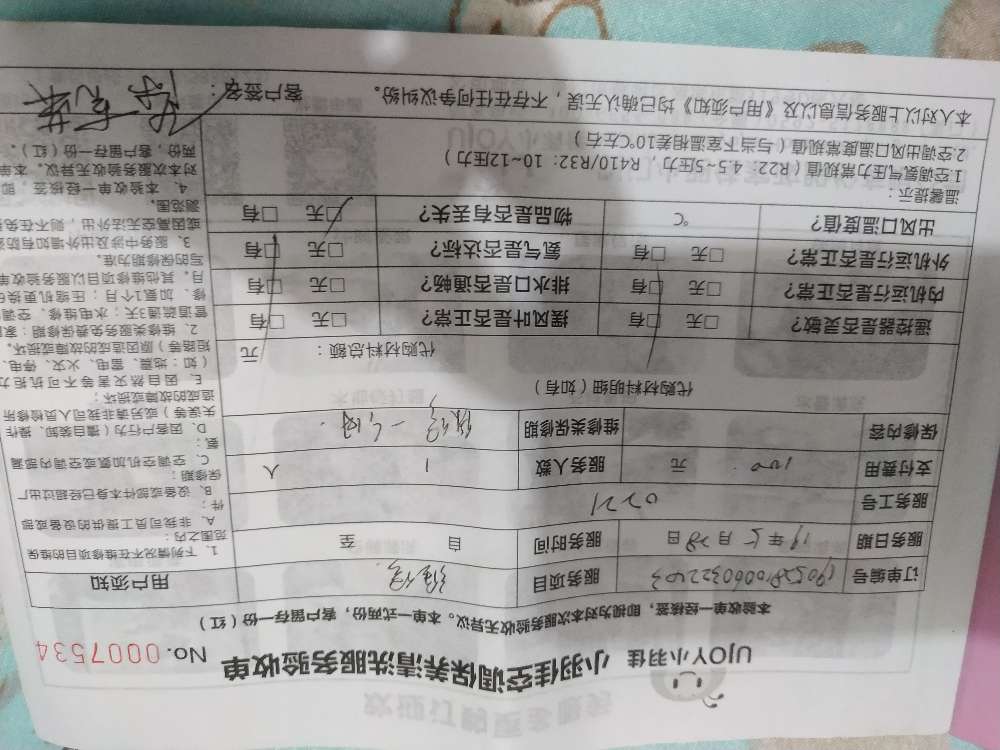 UJOY小羽佳 小羽佳空调保养清洗服务验收单 No. 0007534
本验收单一经核签,即视为对本次服务验收无异议。本单一式两份,客户留存一份(红)
订单编号 服务项目 维修
服务日期 19年5月28日 服务时间 自 至
服务工号 0721
支付费用 100 元 服务人数 1 人
保修内容 维修类保修期 一个月
代购材料明细(如有)
代购材料总额: 元
遥控器是否灵敏? □无 □有 摆风叶是否正常? □无 □有
内机运行是否正常? □无 □有 排水口是否通畅? □无 □有
外机运行是否正常? □无 □有 氨气是否达标? □无 □有
出风口温度值? ℃ 物品是否有丢失? □无 □有
温馨提示:
1空调氨气压力常规值(R22:4.5~5压力,R410/R32:10~12压力)
2.空调出风口温度常规值(与当下室温相差10℃左右)
本人对以上服务信息以及《用户须知》均已确认无误,不存在任何争议纠纷。 客户签名:
用户须知
1、下列情况不在维修项目的维保
范围之内:
A、非我司员工提供的设备或部
件;
B、设备或部件本身已经超过出厂
保修期;
C、空调空机加氨或空调内部漏
氨;
D、因客户行为(擅自装卸、操作
失误等)或另请非我司人员检修所
造成的故障或损坏;
E、因自然灾害等不可抗拒力
(如:地震、雷电、火灾、停电、
短路等)原因造成的故障或损坏。
2、维修类服务免费保修期:家
管道疏通3天;水电维修、空调
修、加氨1个月;压缩机更换6
月。其他维修项目以服务验收单
写的保修期为准。
3、服务中涉及出外墙如有防
或因高空无法外出,则不在免
测范围。
4、本验收单一经核签,即
对本次服务验收无异议。本单
两份,客户留存一份(红)。